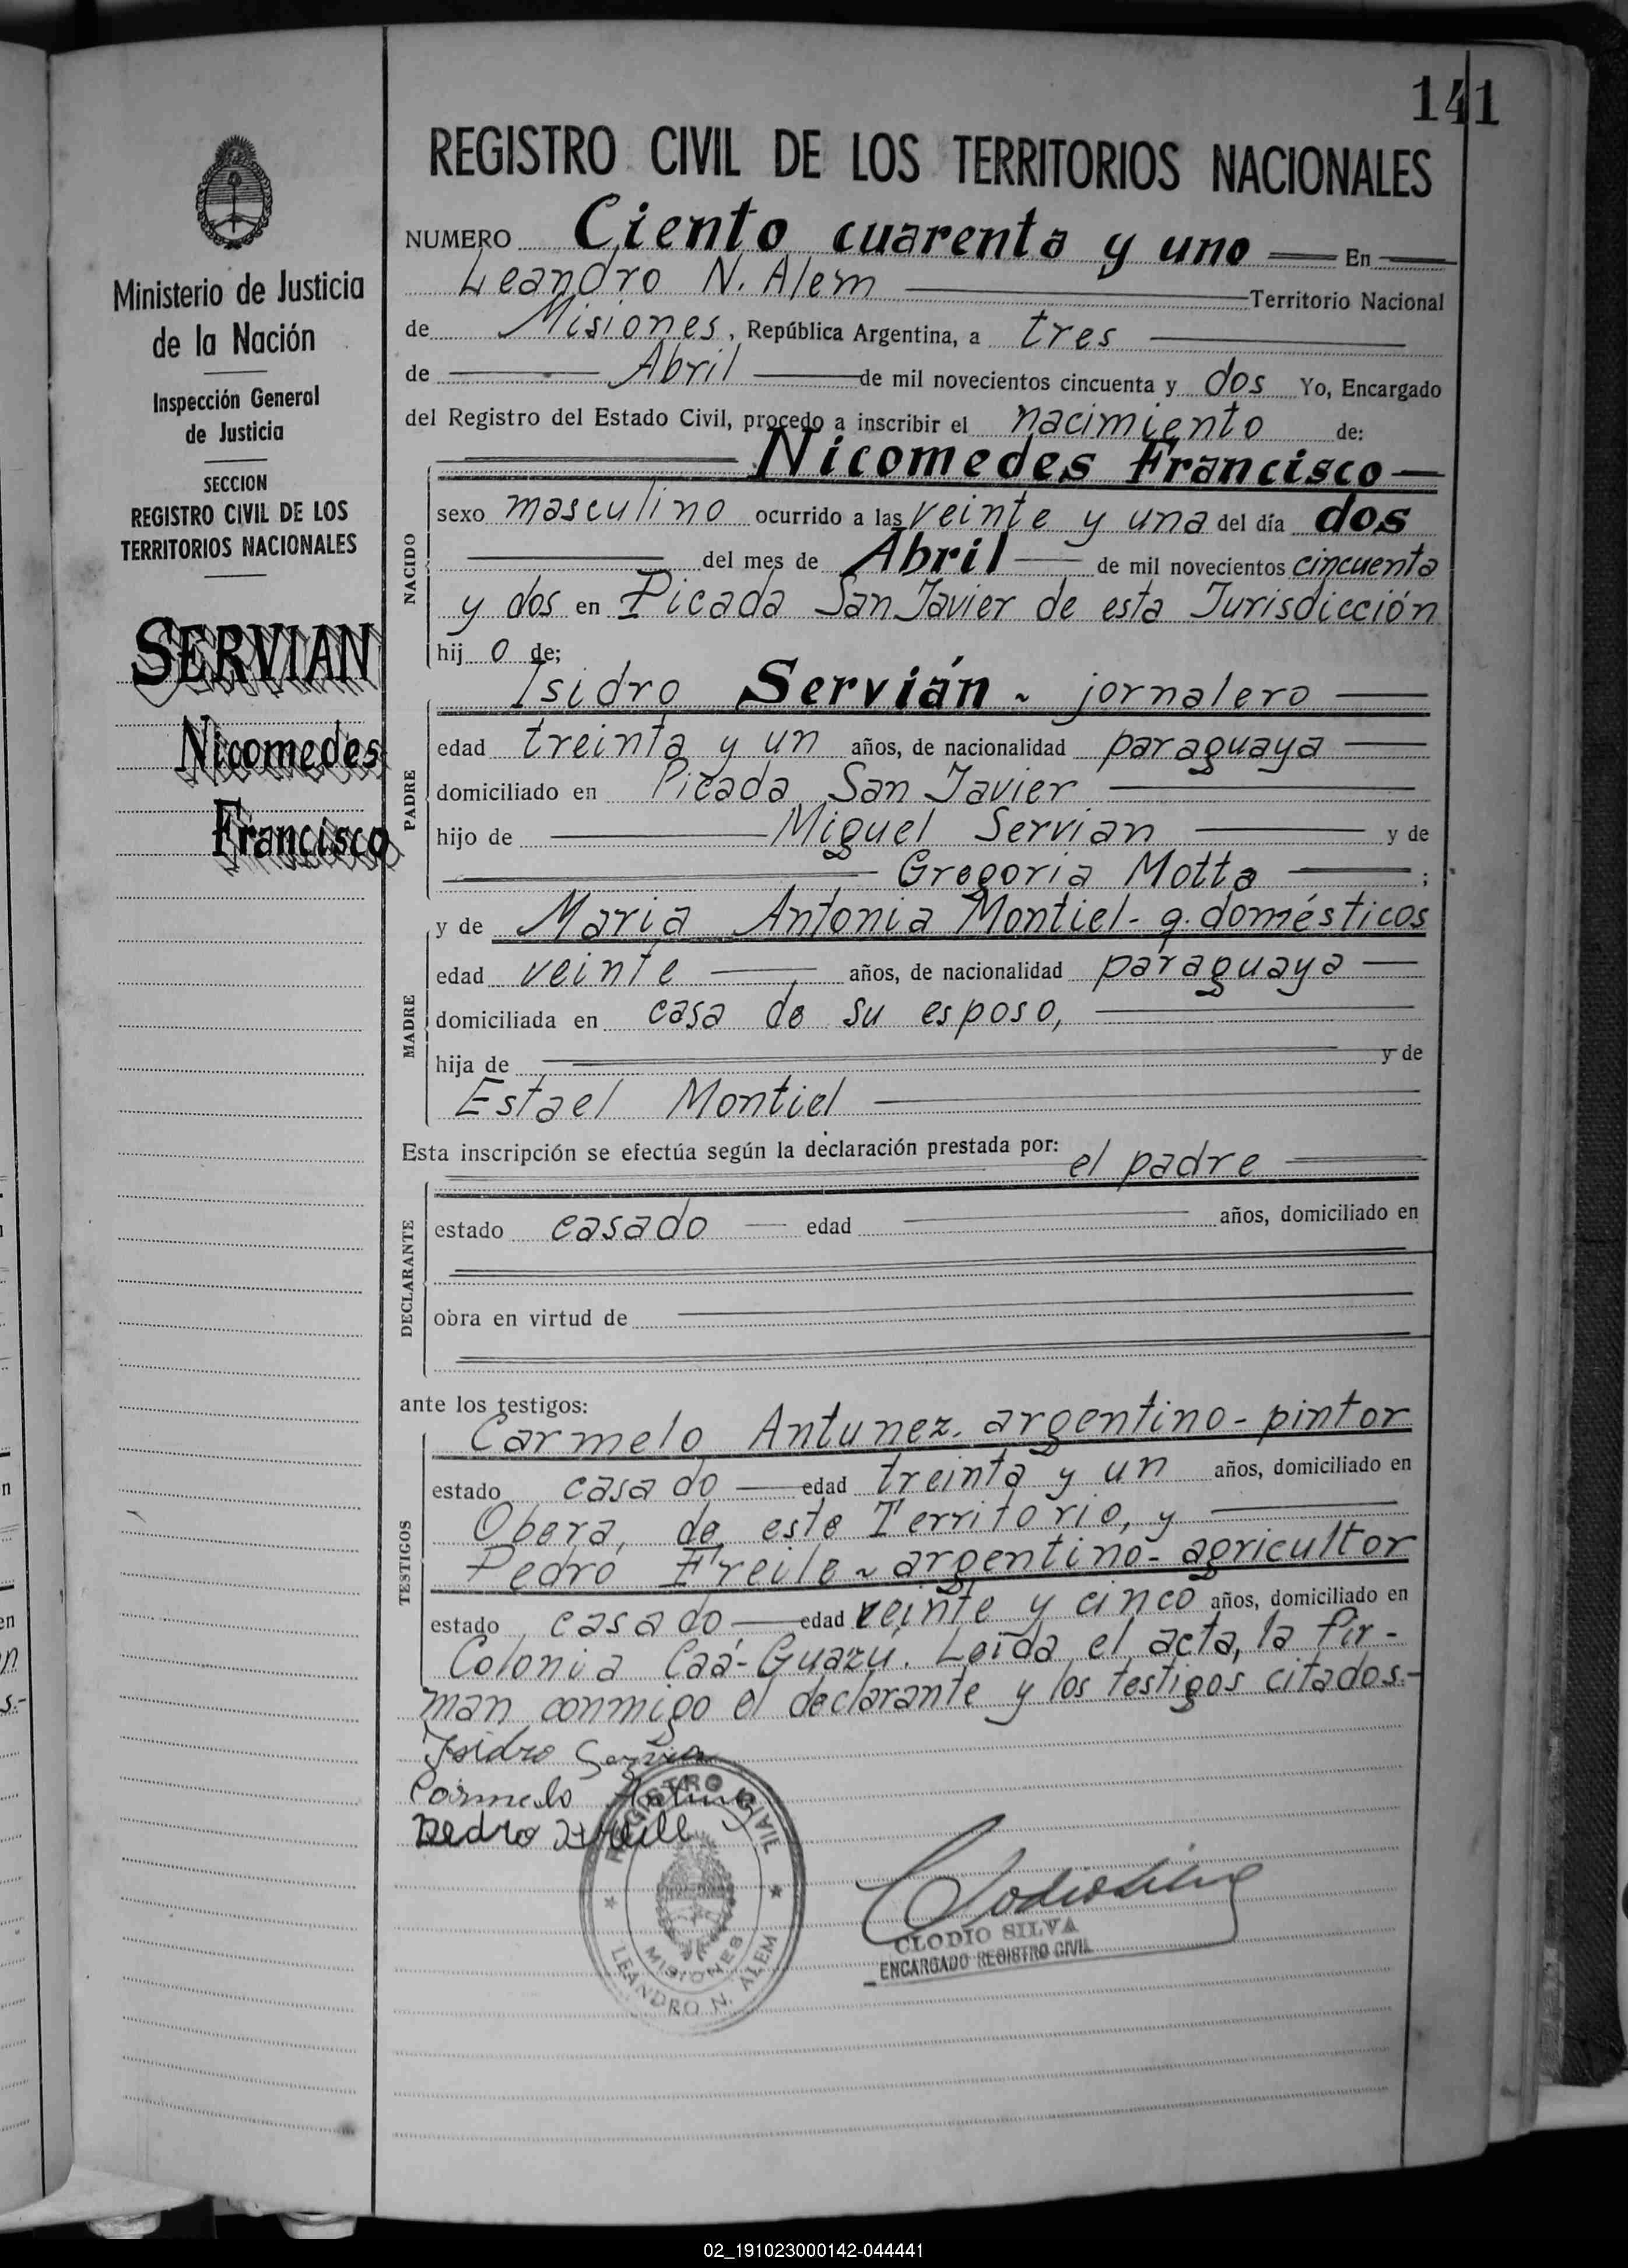 141
Ministerio de Justicia
de la Nación
Inspección General
de Justicia
SECCION
REGISTRO CIVIL DE LOS
TERRITORIOS NACIONALES
SERVIAN
Nicomedes
Francisco
REGISTRO CIVIL DE LOS TERRITORIOS NACIONALES
NUMERO Ciento cuarenta y uno En
Leandro N. Alem Territorio Nacional
de Misiones, República Argentina, a tres
de Abril de mil novecientos cincuenta y dos Yo, Encargado
del Registro del Estado Civil, procedo a inscribir el nacimiento de:
NACIDO
Nicomedes Francisco
sexo masculino ocurrido a las veinte y una del día dos
del mes de Abril de mil novecientos cincuenta
y dos en Picada San Javier de esta Jurisdicción
hij o de;
PADRE
Isidro Servián ~ jornalero
edad treinta y un años, de nacionalidad paraguaya
domiciliado en Picada San Javier
hijo de Miguel Servian y de
Gregoria Motta ;
MADRE
y de Maria Antonia Montiel- q. domésticos
edad veinte años, de nacionalidad paraguaya
domiciliada en casa de su esposo,
hija de y de
Estael Montiel
Esta inscripción se efectúa según la declaración prestada por: el padre
DECLARANTE
estado casado edad años, domiciliado en
obra en virtud de
ante los testigos:
TESTIGOS
Carmelo Antunez. argentino- pintor
estado casado edad treinta y un años, domiciliado en
Obera, de este Territorio, y
Pedro Freile ~ argentino- agricultor
estado casado edad veinte y cinco años, domiciliado en
Colonia Caá-Guazú. Leída el acta, la fir-
man conmigo el declarante y los testigos citados.-
Isidro Servian
Carmelo
Pedro
REGISTRO CIVIL
MISIONES
LEANDRO N. ALEM
Clodio Silva
CLODIO SILVA
ENCARGADO REGISTRO CIVIL
02_191023000142-044441